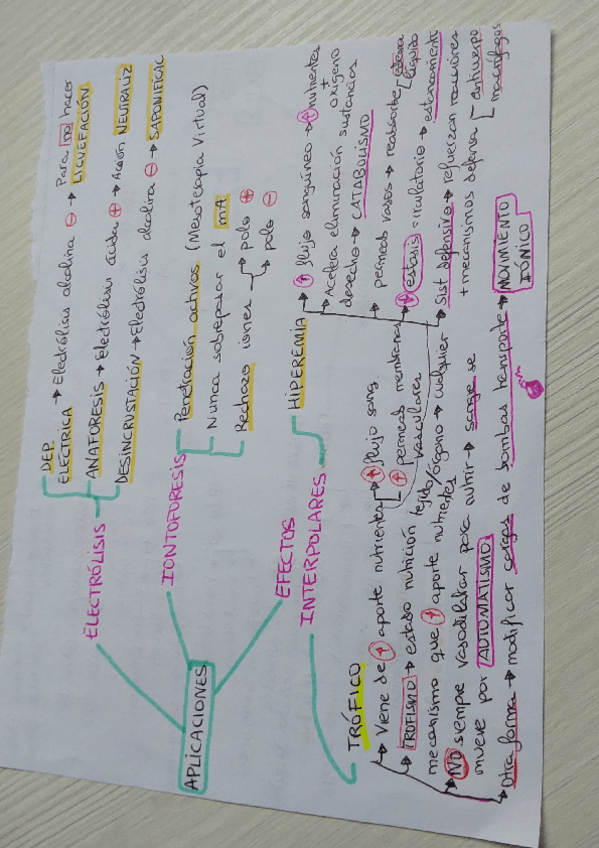 APLICACIONES
ELECTRÓLISIS
DEP.
ELÉCTRICA → Electrólisis alcalina ⊖ → Para no hacer
LICUEFACIÓN
ANAFORESIS → Electrólisis ácida ⊕ → Acción NEUTRALIZ
DESINCRUSTACIÓN → Electrólisis alcalina ⊖ → SAPONIFICAC
IONTOFORESIS
Penetración activos (Mesoterapia Virtual)
Nunca sobrepasar el mA
Rechazo iones → polo ⊕
→ polo ⊖
EFECTOS
INTERPOLARES
HIPEREMIA → ↑ flujo sanguíneo → ↑ nutrientes
+ oxígeno
→ Acelera eliminación sustancias
desecho → CATABOLISMO
→ permeab vasos → reabsorbe
líquido
→ ↓ estasis circulatorio → estancamiento
→ Sist defensivo → refuerzan reacciones
+ mecanismos defensa [ anticuerpo
macrófagos
TRÓFICO
→ Viene de ↑ aporte nutrientes → ↑ flujo sang.
↑ permeab membranas
vasculares
→ TROFISMO → estado nutrición tejido/órgano → cualquier
mecanismo que ↑ aporte nutrientes
→ NO siempre vasodilatar para nutrir → sangre se
mueve por AUTOMATISMO
→ Otra forma → modificar cargas de bombas transporte → MOVIMIENTO
IÓNICO